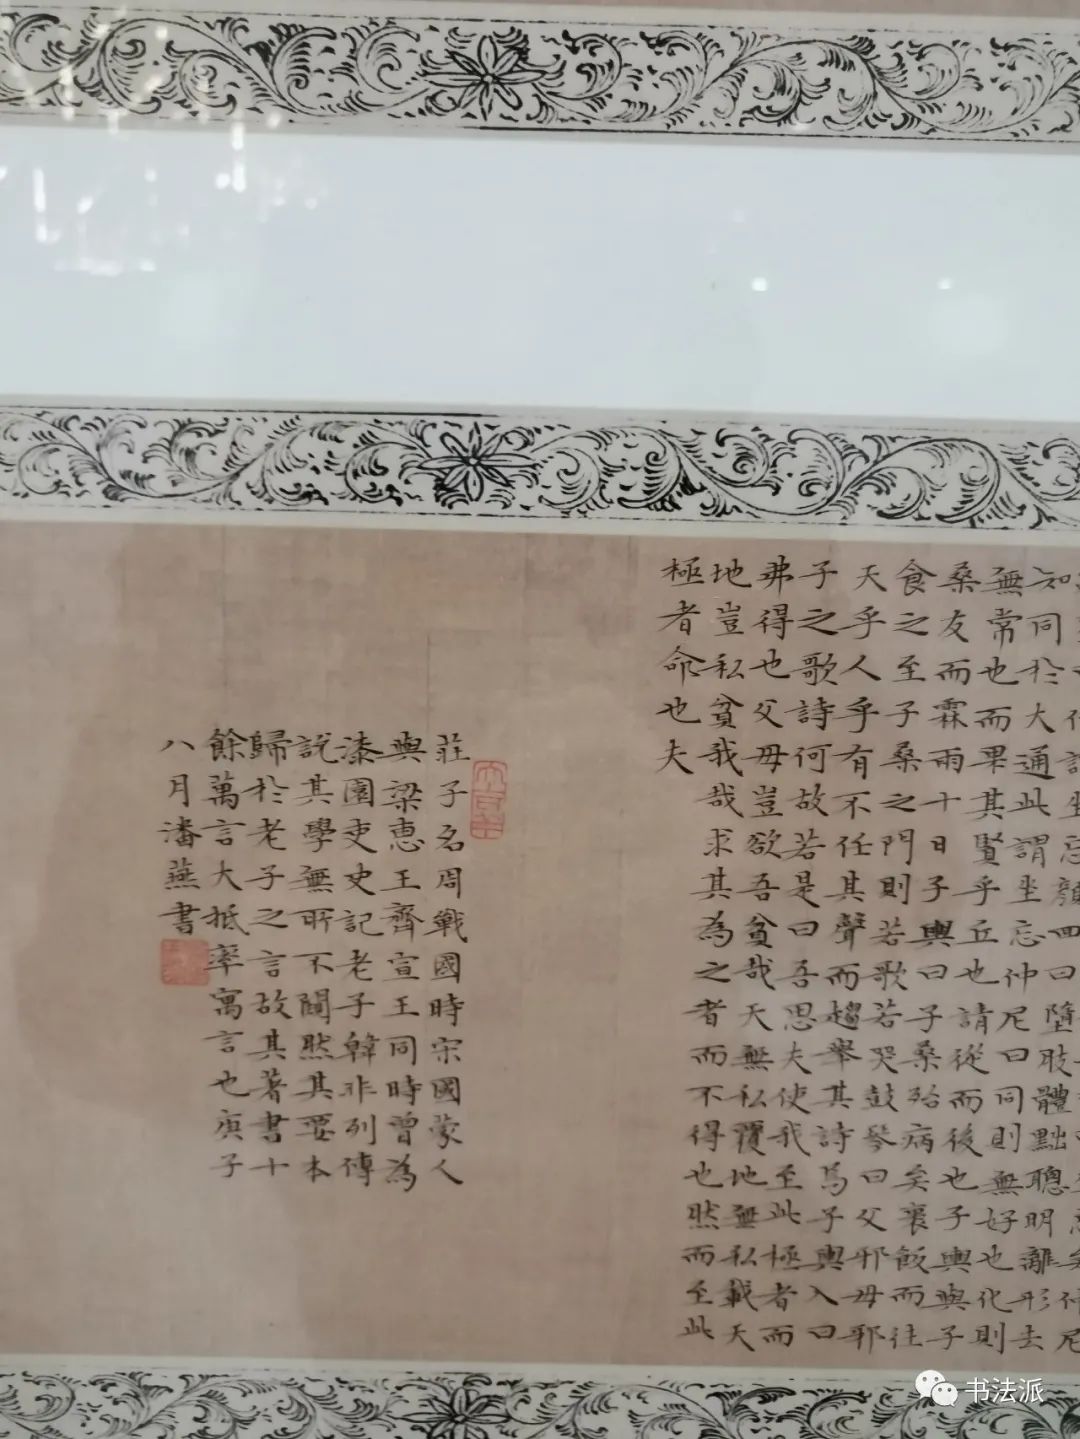 忘顏回曰墮肢體黜聰明離形去
知同於大通此謂坐忘仲尼曰同則無好也化則
無常也而果其賢乎丘也請從而後也子輿與子
桑友而霖雨十日子輿曰子桑殆病矣裹飯而往
食之至子桑之門則若歌若哭鼓琴曰父邪母邪
天乎人乎有不任其聲而趨舉其詩焉子輿入曰
子之歌詩何故若是曰吾思夫使我至此極者而
弗得也父母豈欲吾貧哉天無私覆地無私載天
地豈私貧我哉求其為之者而不得也然而至此
極者命也夫
莊子名周戰國時宋國蒙人
與梁惠王齊宣王同時曾為
漆園吏史記老子韓非列傳
說其學無所不闚然其要本
歸於老子之言故其著書十
餘萬言大抵率寓言也庚子
八月潘燕書
书法派